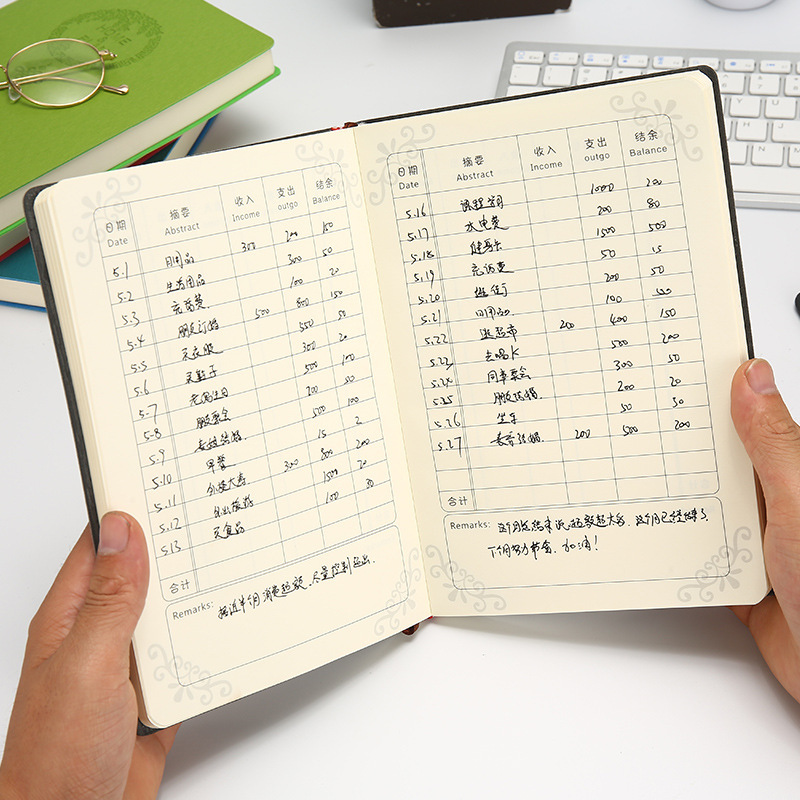 日期 摘要 收入 支出 结余
Date Abstract Income outgo Balance
5.1 日用品 300 200 150
5.2 生活用品 300 50
5.3 充话费 100 20
5.4 朋友订婚 500 800 150
5.5 买衣服 550 50
5.6 买鞋子 300 20
5.7 500 100
5.8 朋友聚会 200 50
5.9 500 100
5.10 早餐 15 2
5.11 300 800 200
5.12 1500 20
5.13 买食品 100 30
合计
Remarks: 接近半个月消费超额，尽量控制超出.
日期 摘要 收入 支出 结余
Date Abstract Income outgo Balance
5.16 课程费用 1000 200
5.17 水电费 200 80
5.18 健身卡 1500 500
5.19 充话费 50 15
5.20 逛街 200 50
5.21 日用品 100
5.22 逛超市 200 400 150
5.23 去唱K 500 200
5.24 同事聚会 300 50
5.25 朋友结婚 200 20
5.26 坐车 50 30
5.27 200 500 200
合计
Remarks: 这个月总结来说，超额超大了，这个月已经结束了，
下个月努力节省，加油！